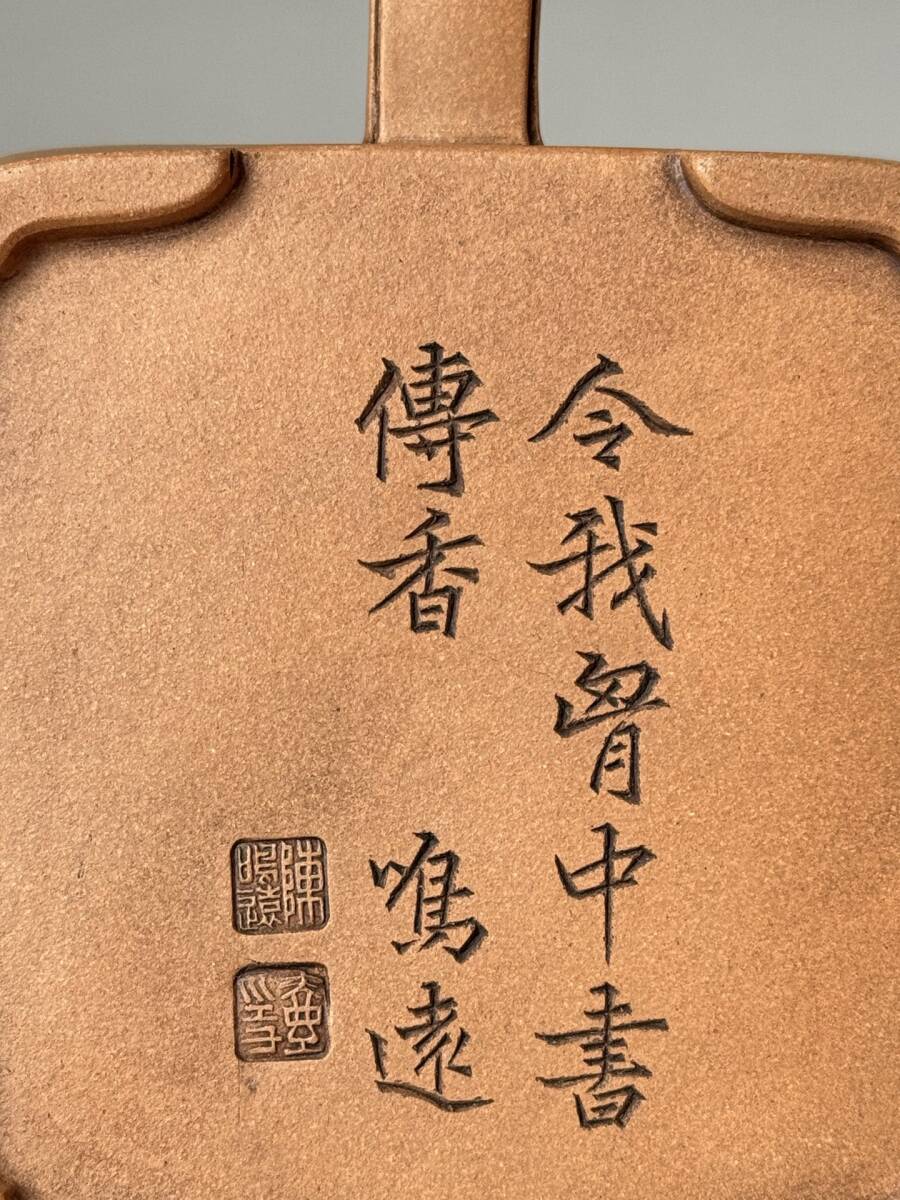 令我胷中書
傳香 鳴遠
陳鳴遠